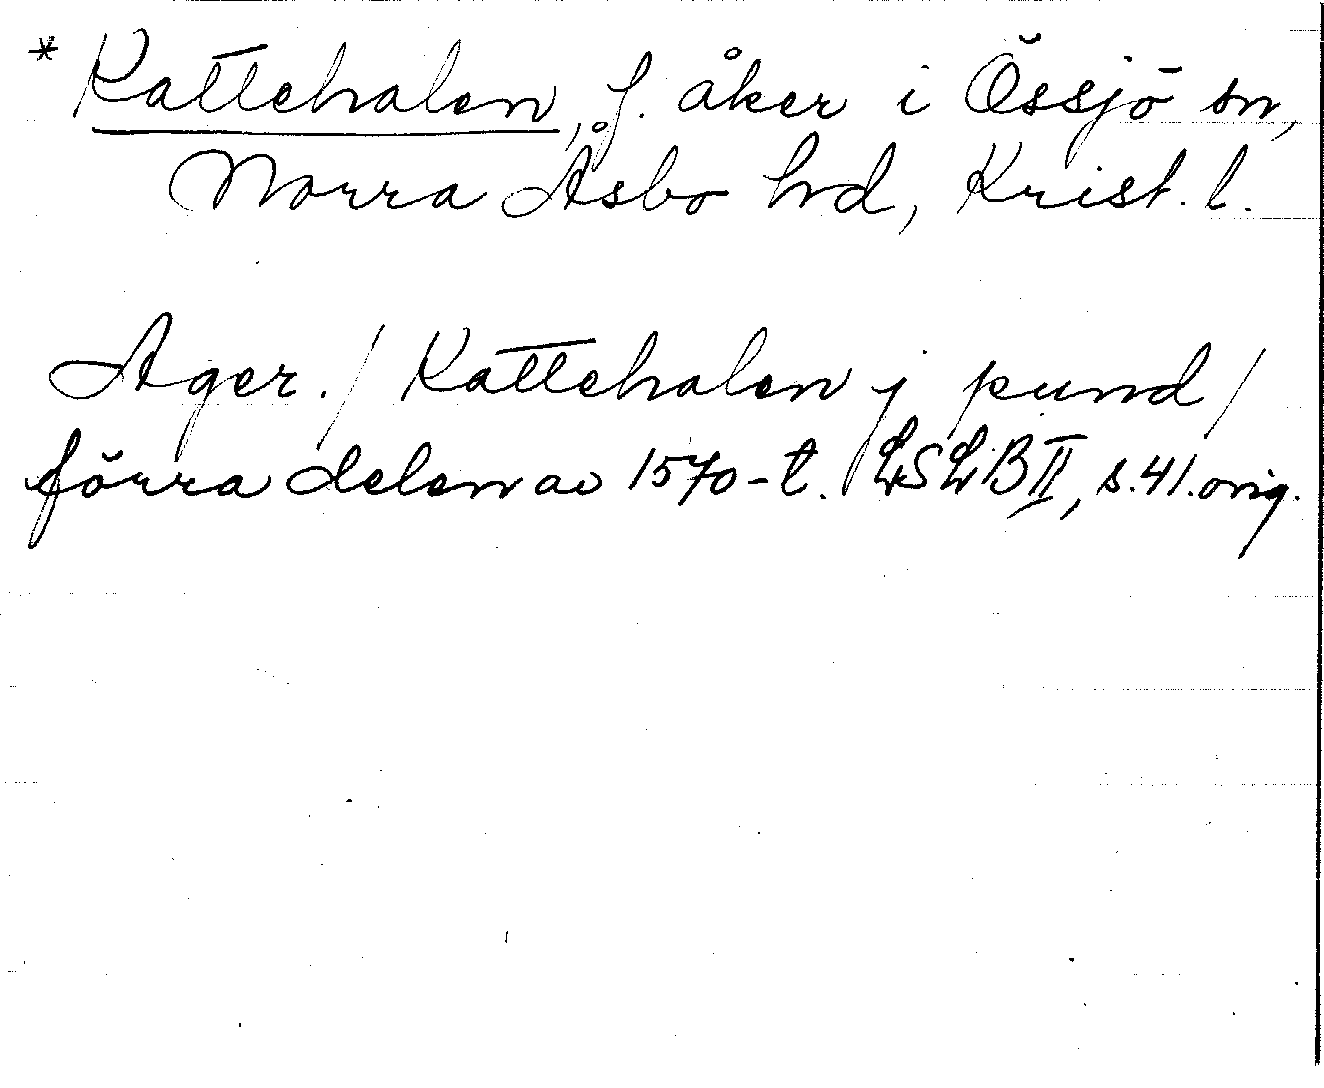 * Kattehalen, f. åker i Össjö sn,
Norra Åsbo hd, Krist. l.
Ager. / Kattehalen j pund /
förra delen av 1570-t. LSLB II, s. 41. orig.